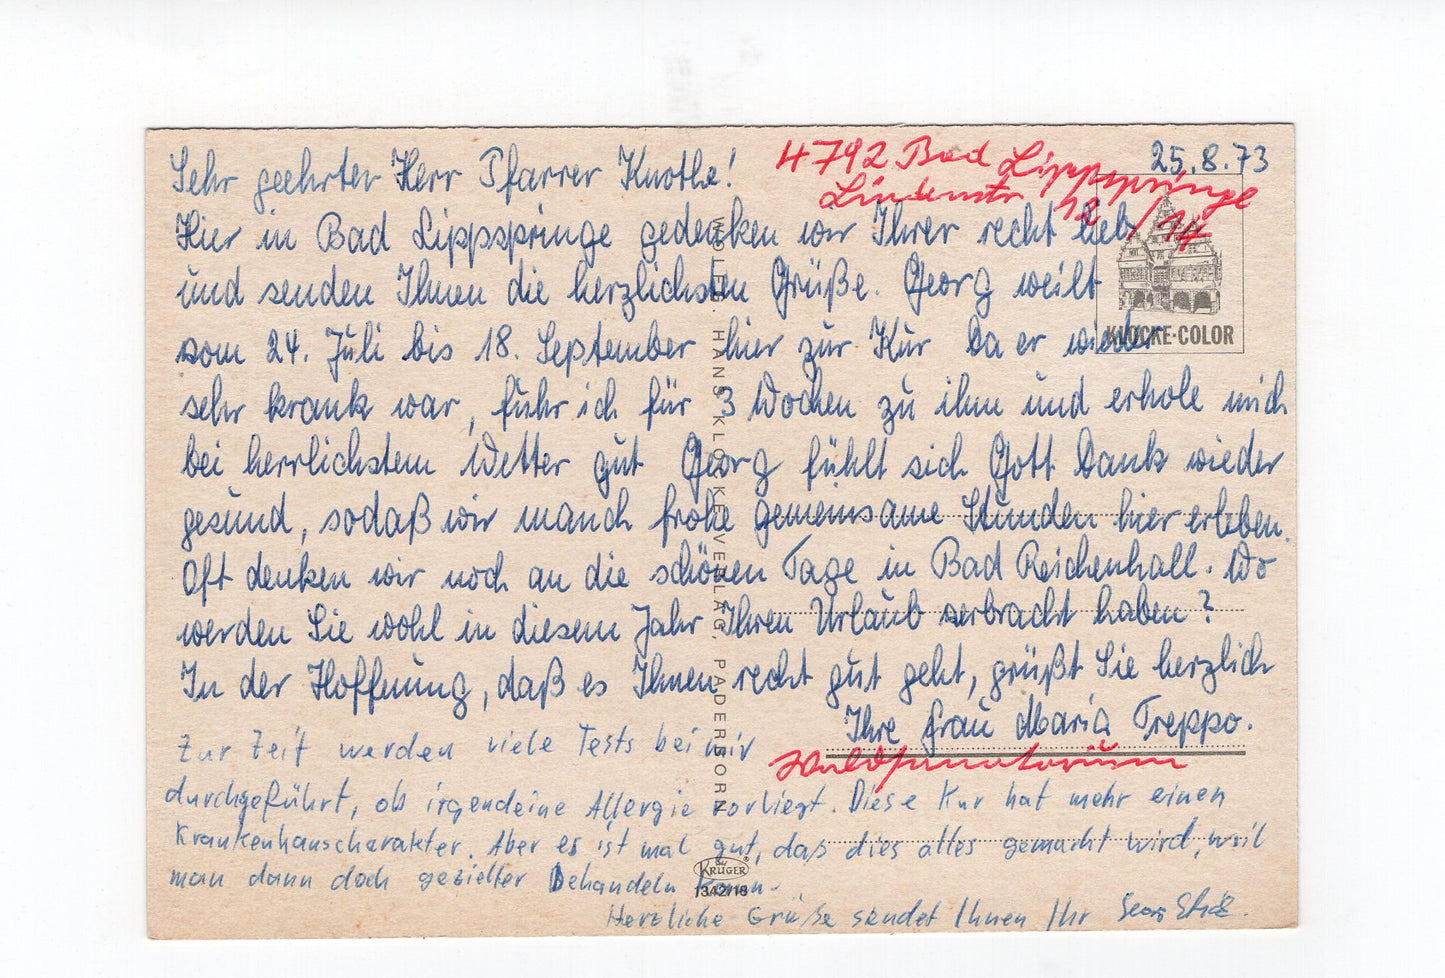 25.8.73
4792 Bad Lippspringe
Lindenstr 12/14
Sehr geehrter Herr Pfarrer Knothe!
Hier in Bad Lippspringe gedenken wir Ihrer recht lieb
und senden Ihnen die herzlichsten Grüße. Georg weilt
vom 24. Juli bis 18. September hier zur Kur Da er wieder
sehr krank war, fuhr ich für 3 Wochen zu ihm und erhole mich
bei herrlichstem Wetter gut Georg fühlt sich Gott Dank wieder
gesund, sodaß wir manch frohe gemeinsame Stunden hier erleben.
Oft denken wir noch an die schönen Tage in Bad Reichenhall. Wo
werden Sie wohl in diesem Jahr Ihren Urlaub verbracht haben?
In der Hoffnung, daß es Ihnen recht gut geht, grüßt Sie herzlich
Ihre Frau Maria Treppo.
Waldsanatorium
Zur Zeit werden viele Tests bei mir
durchgeführt, ob irgendeine Allergie vorliegt. Diese Kur hat mehr einen
Krankenhauscharakter. Aber es ist mal gut, daß dies alles gemacht wird, weil
man dann doch gezielter behandeln kann.
Herzliche Grüße sendet Ihnen Ihr Georg
KLOCKE-COLOR
WOLF. HANS KLOCKE VERLAG, PADERBORN
KRÜGER
1342/18